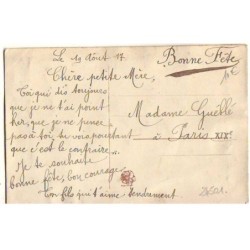 Le 19 Août 17.
Bonne Fête
Chère petite Mère,
Toi qui dis toujours
que je ne t'ai point
que je ne pense
pas à toi, tu vois pourtant
que c'est le contraire.
Je te souhaite
bonne fête, bon courage
Ton fils qui t'aime tendrement
Madame Guëllé
à Paris XIXe